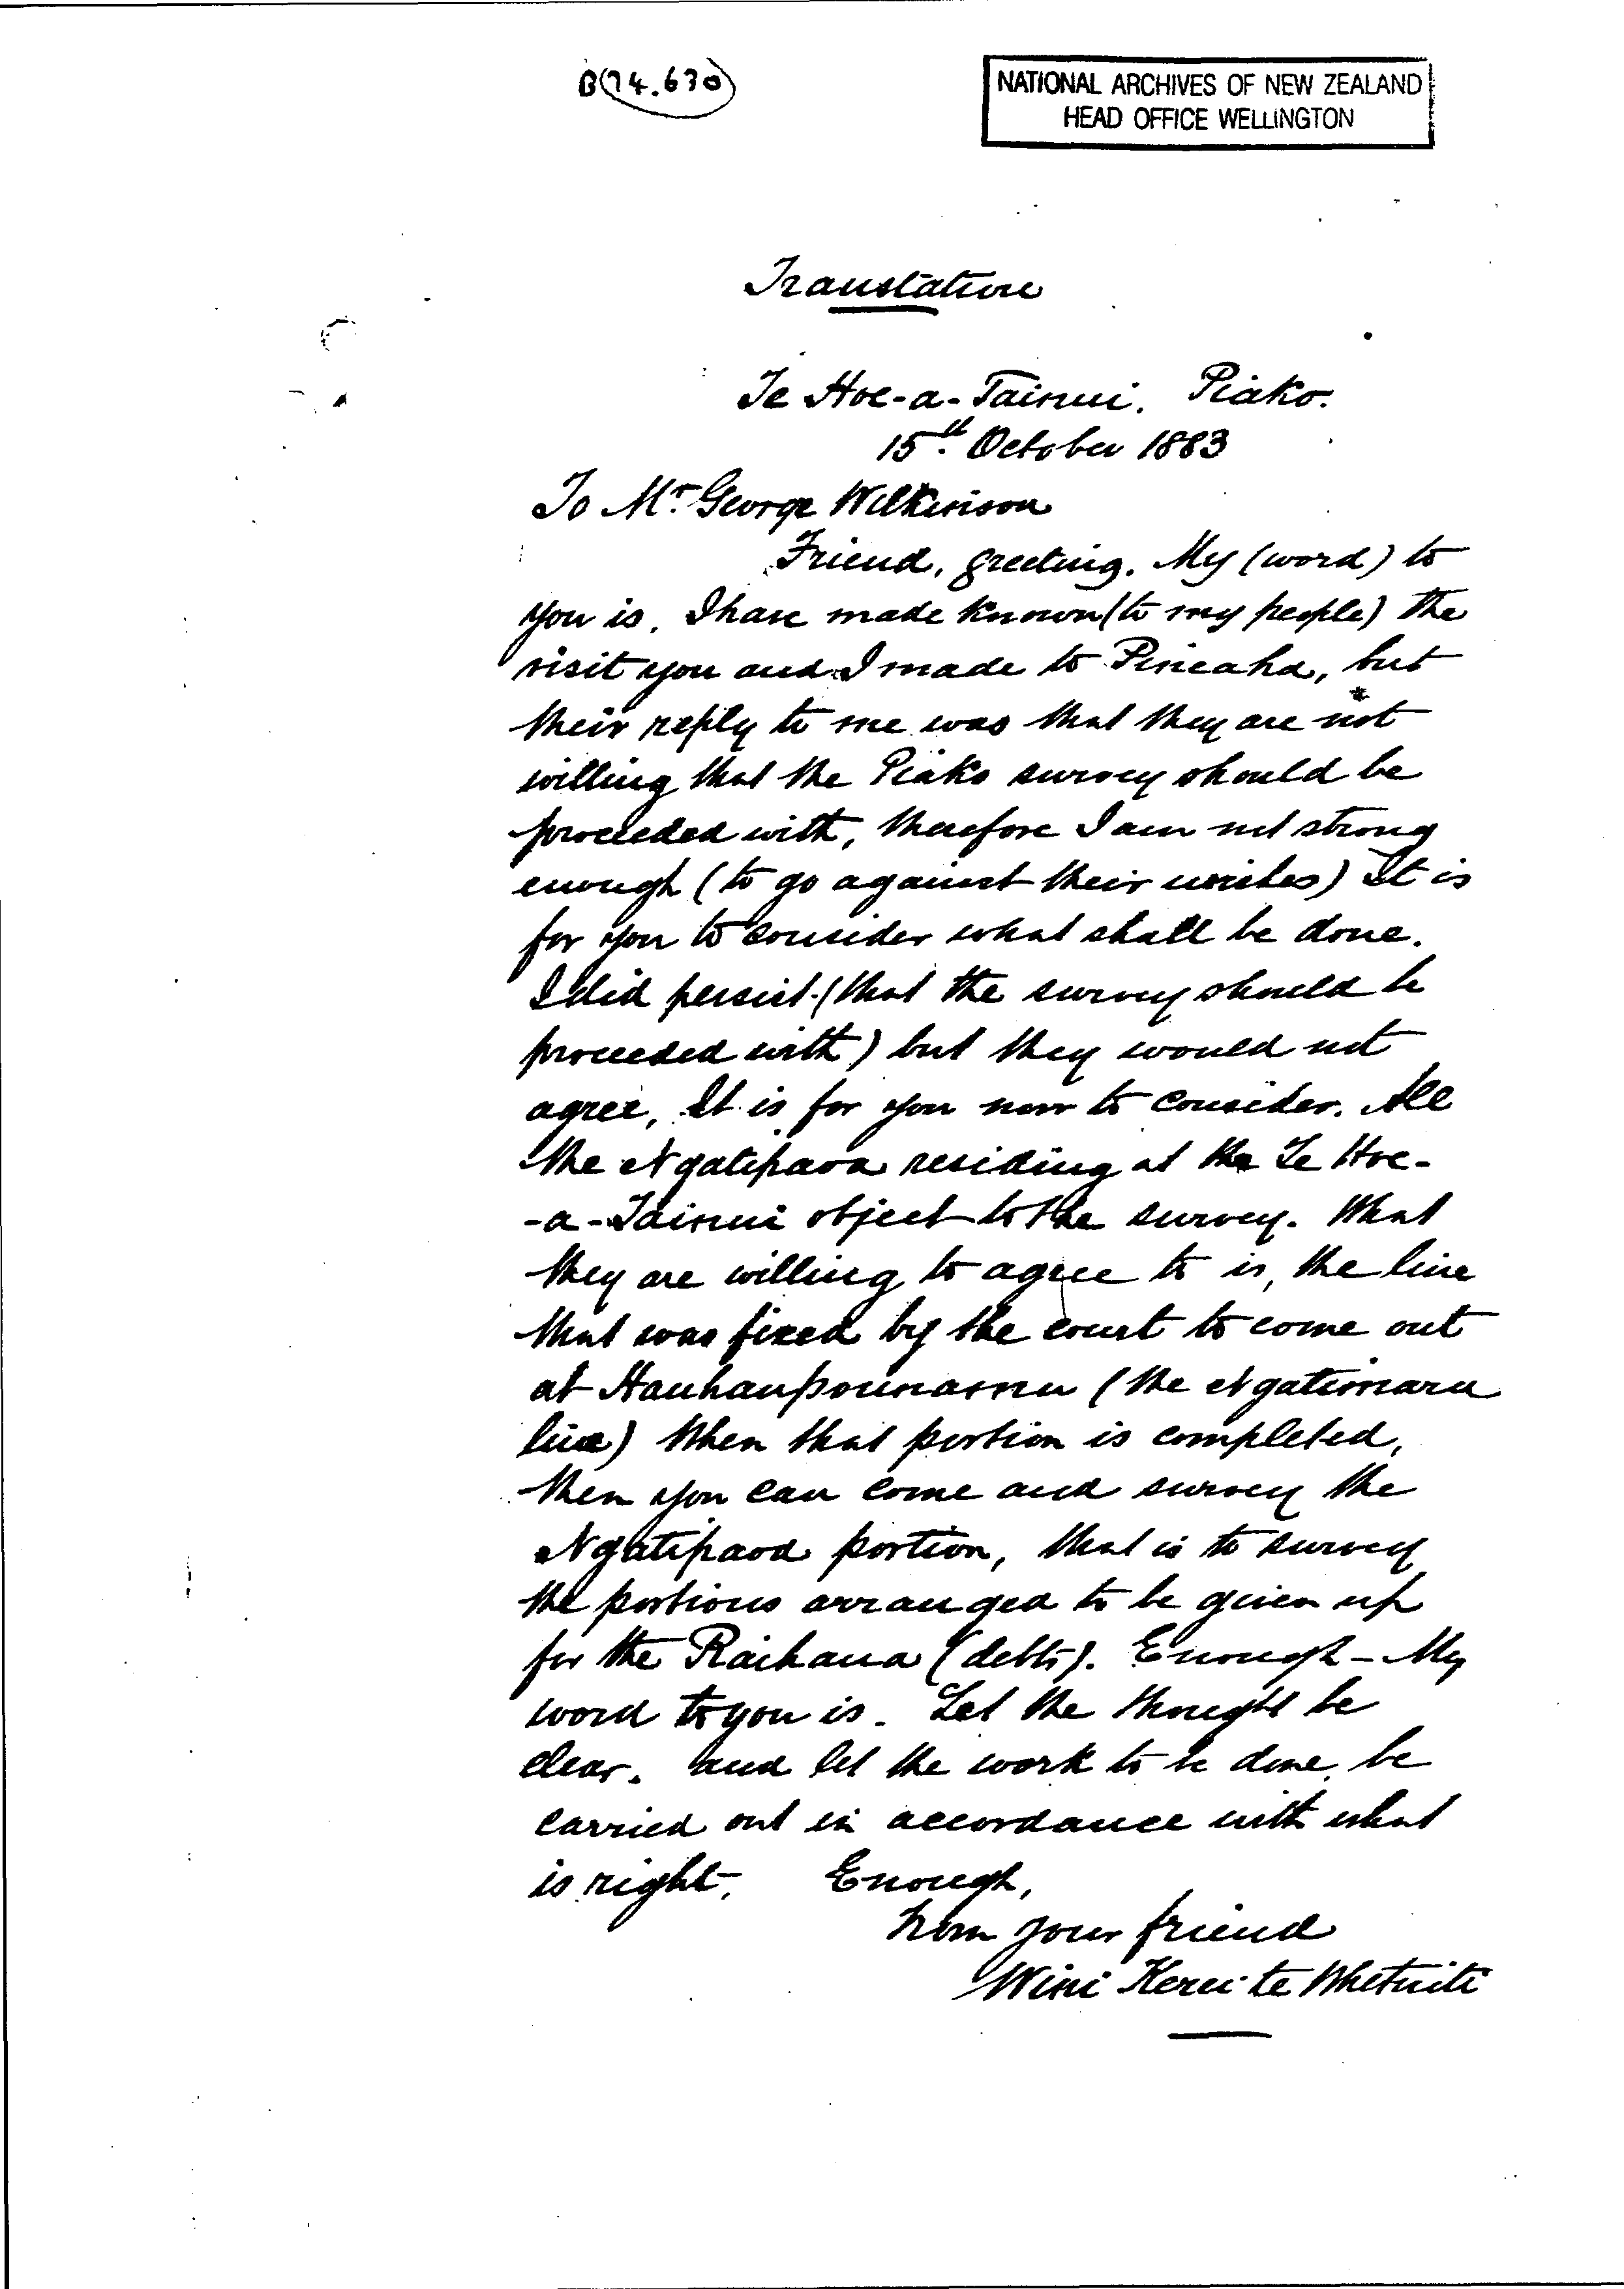 B(74.630)
NATIONAL ARCHIVES OF NEW ZEALAND
HEAD OFFICE WELLINGTON
Translation
Te Hoe-a-Tainui. Piako.
15th. October 1883
To Mr. George Wilkinson
Friend, greeting. My (word) to
you is. I have made known (to my people) the
visit you and I made to Pineaha, but
their reply to me was that they are not
willing that the Piako survey should be
proceeded with, therefore I am not strong
enough (to go against their wishes) It is
for you to consider what shall be done.
I did persist (that the survey should be
proceeded with) but they would not
agree, It is for you now to consider. All
the Ngatipaoa residing at the Te Hoe-
-a-Tainui object to the survey. What
they are willing to agree to is, the line
that was fixed by the court to come out
at Hauhaupounamu (the Ngatimaru
line) When that portion is completed,
then you can come and survey the
Ngatipaoa portion, that is to survey
the portions arranged to be given up
for the Raihana (debts). Enough - My
word to you is. Let the thought be
clear. and let the work to be done, be
carried out in accordance with what
is right. Enough,
from your friend
Wini Kerei te Whetuiti